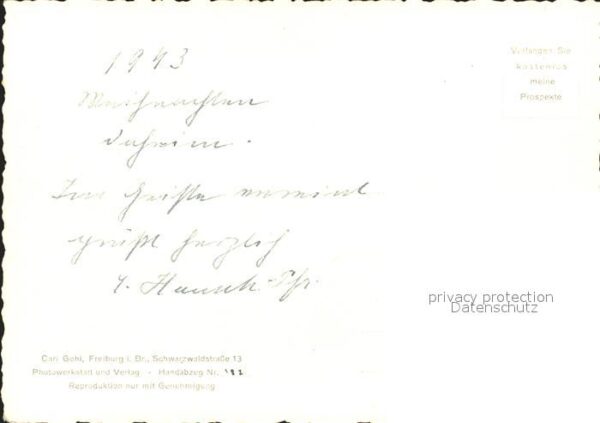 1943
Weihnachten
daheim.
Im Geiste vereint
grüßt herzlich
Verlangen Sie
kostenlos
meine
Prospekte
privacy protection
Datenschutz
Carl Gohl, Freiburg i. Br., Schwarzwaldstraße 13
Photowerkstatt und Verlag - Handabzug Nr.
Reproduktion nur mit Genehmigung